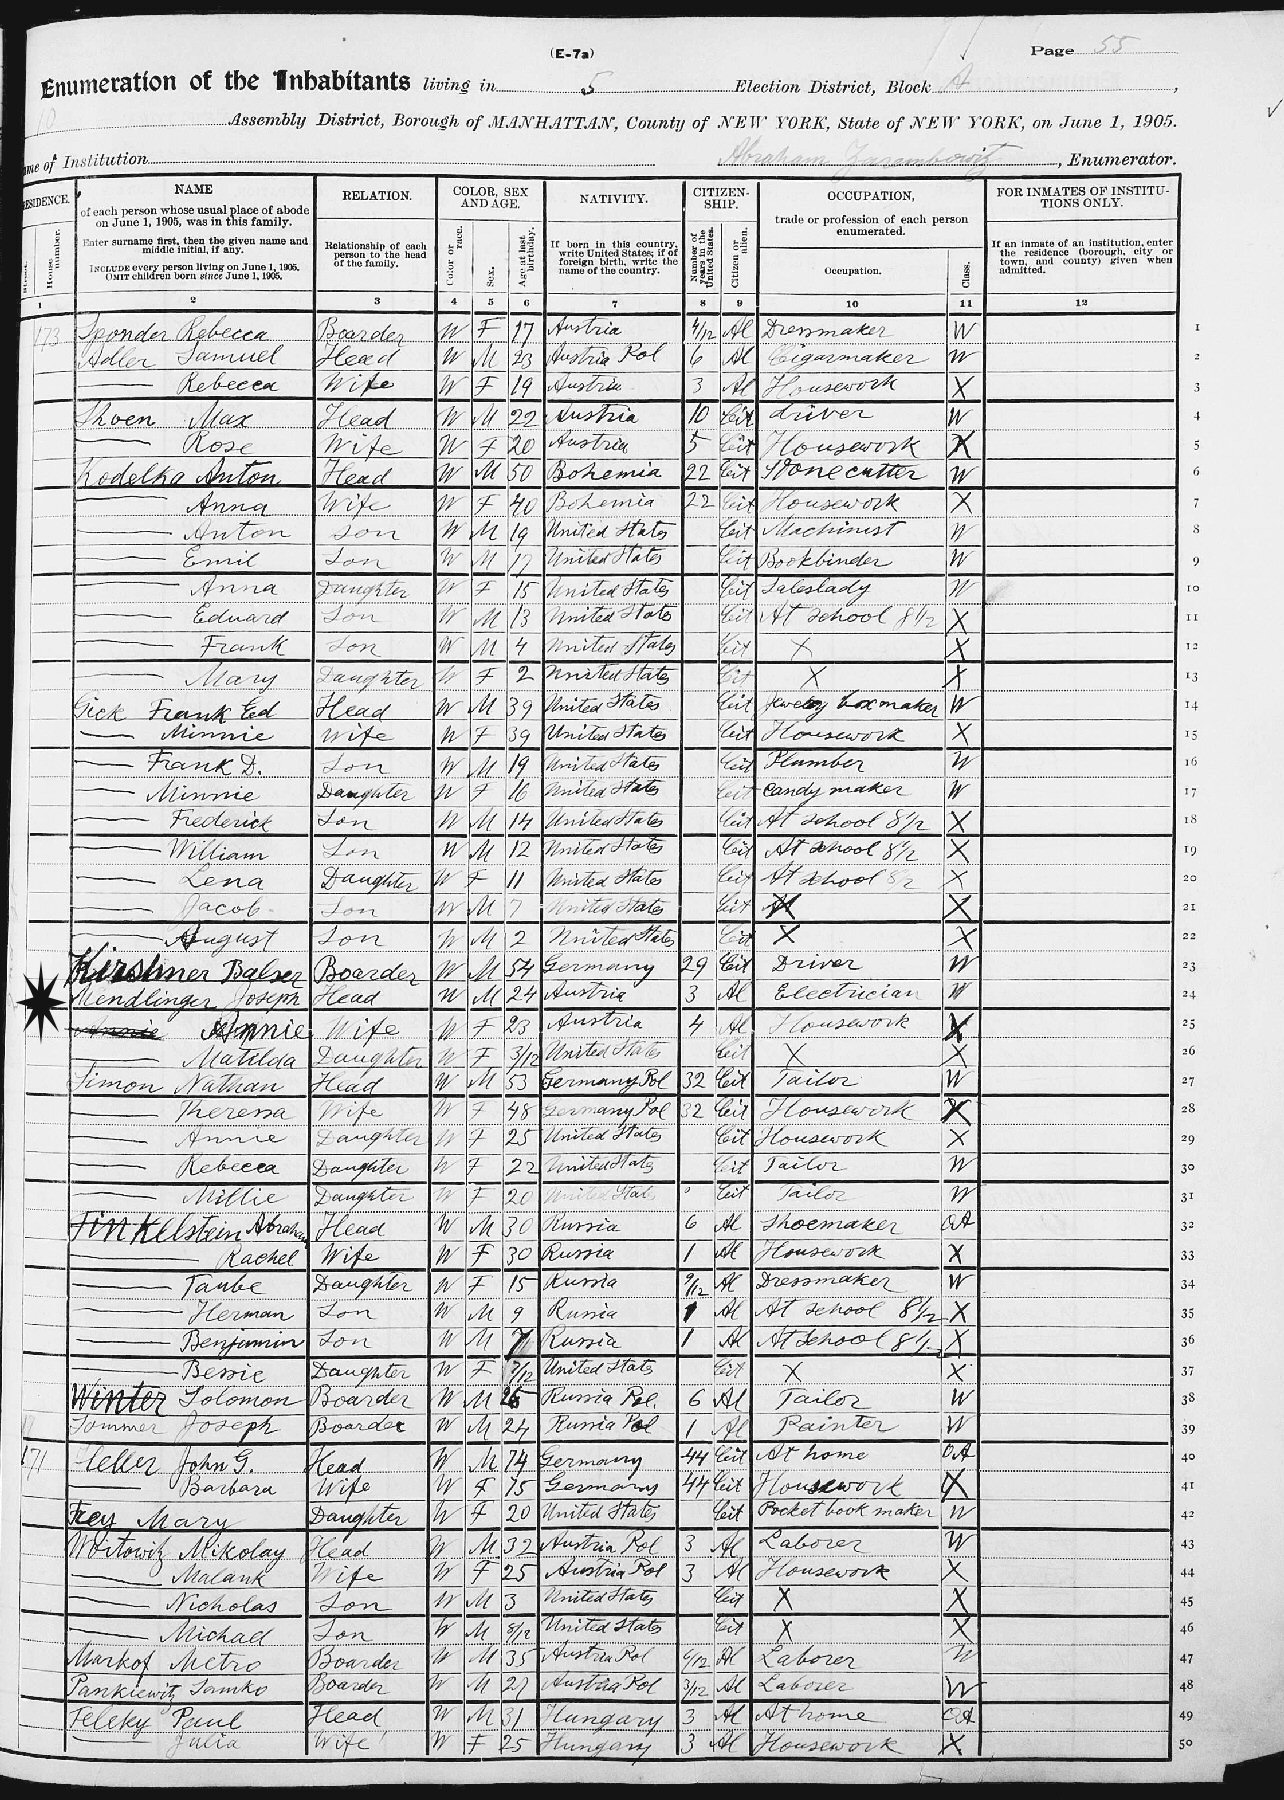 (E-7a)
Page 55
Enumeration of the Inhabitants living in 5 Election District, Block A,
10 Assembly District, Borough of MANHATTAN, County of NEW YORK, State of NEW YORK, on June 1, 1905.
me of Institution Abraham , Enumerator.
RESIDENCE. NAME RELATION. COLOR, SEX AND AGE. NATIVITY. CITIZENSHIP. OCCUPATION, FOR INMATES OF INSTITUTIONS ONLY.
of each person whose usual place of abode on June 1, 1905, was in this family.
Enter surname first, then the given name and middle initial, if any.
INCLUDE every person living on June 1, 1905. OMIT children born since June 1, 1905.
Relationship of each person to the head of the family.
Color or race. Sex. Age at last birthday.
If born in this country, write United States; if of foreign birth, write the name of the country.
Number of years in the United States. Citizen or alien.
trade or profession of each person enumerated.
Occupation. Class.
If an inmate of an institution, enter the residence (borough, city or town, and county) given when admitted.
House number.
1 2 3 4 5 6 7 8 9 10 11 12
173 Sponder Rebecca Boarder W F 17 Austria 4/12 Al Dressmaker W 1
Adler Samuel Head W M 23 Austria Pol 6 Al Cigarmaker W 2
Rebecca Wife W F 19 Austria 3 Al Housework X 3
Shoen Max Head W M 22 Austria 10 Cit driver W 4
Rose Wife W F 20 Austria 5 Cit Housework X 5
Kodelka Anton Head W M 50 Bohemia 22 Cit Stonecutter W 6
Anna Wife W F 40 Bohemia 22 Cit Housework X 7
Anton Son W M 19 United States Cit Machinist W 8
Emil Son W M 17 United States Cit Bookbinder W 9
Anna Daughter W F 15 United States Cit Saleslady W 10
Eduard Son W M 13 United States Cit At school 8 1/2 X 11
Frank Son W M 4 United States Cit X X 12
Mary Daughter W F 2 United States Cit X X 13
Gick Frank Ed Head W M 39 United States Cit Jewelry boxmaker W 14
Minnie Wife W F 39 United States Cit Housework X 15
Frank D. Son W M 19 United States Cit Plumber W 16
Minnie Daughter W F 16 United States Cit Candy maker W 17
Frederick Son W M 14 United States Cit At school 8 1/2 X 18
William Son W M 12 United States Cit At school 8 1/2 X 19
Lena Daughter W F 11 United States Cit At school 8 1/2 X 20
Jacob Son W M 7 United States Cit X 21
August Son W M 2 United States Cit X X 22
Kirshner Balser Boarder W M 54 Germany 29 Cit Driver W 23
Mendlinger Joseph Head W M 24 Austria 3 Al Electrician W 24
Annie Annie Wife W F 23 Austria 4 Al Housework X 25
Matilda Daughter W F 3/12 United States Cit X X 26
Simon Nathan Head W M 53 Germany Pol 32 Cit Tailor W 27
Theressa Wife W F 48 Germany Pol 32 Cit Housework X 28
Annie Daughter W F 25 United States Cit Housework X 29
Rebecca Daughter W F 22 United States Cit Tailor W 30
Millie Daughter W F 20 United States Cit Tailor W 31
Finkelstein Abraham Head W M 30 Russia 6 Al Shoemaker OA 32
Rachel Wife W F 30 Russia 1 Al Housework X 33
Taube Daughter W F 15 Russia 9/12 Al Dressmaker W 34
Herman Son W M 9 Russia 1 Al At school 8 1/2 X 35
Benjamin Son W M 7 Russia 1 Al At school 8 1/2 X 36
Bessie Daughter W F 7/12 United States Cit X X 37
Winter Solomon Boarder W M Russia Pol. 6 Al Tailor W 38
Sommer Joseph Boarder W M 24 Russia Pol 1 Al Painter W 39
171 Heller John G. Head W M 74 Germany 44 Cit At home OA 40
Barbara Wife W F 75 Germany 44 Cit Housework X 41
Frey Mary Daughter W F 20 United States Cit Pocket book maker W 42
Woitowitz Mikolay Head W M 32 Austria Pol 3 Al Laborer W 43
Malank Wife W F 25 Austria Pol 3 Al Housework X 44
Nicholas Son W M 3 United States Cit X X 45
Michael Son W M 8/12 United States Cit X X 46
Markof Metro Boarder W M 35 Austria Pol 6/12 Al Laborer W 47
Pankiewitz Samko Boarder W M 27 Austria Pol 3/12 Al Laborer W 48
Feleky Paul Head W M 31 Hungary 3 Al At home OA 49
Julia Wife W F 25 Hungary 3 Al Housework X 50